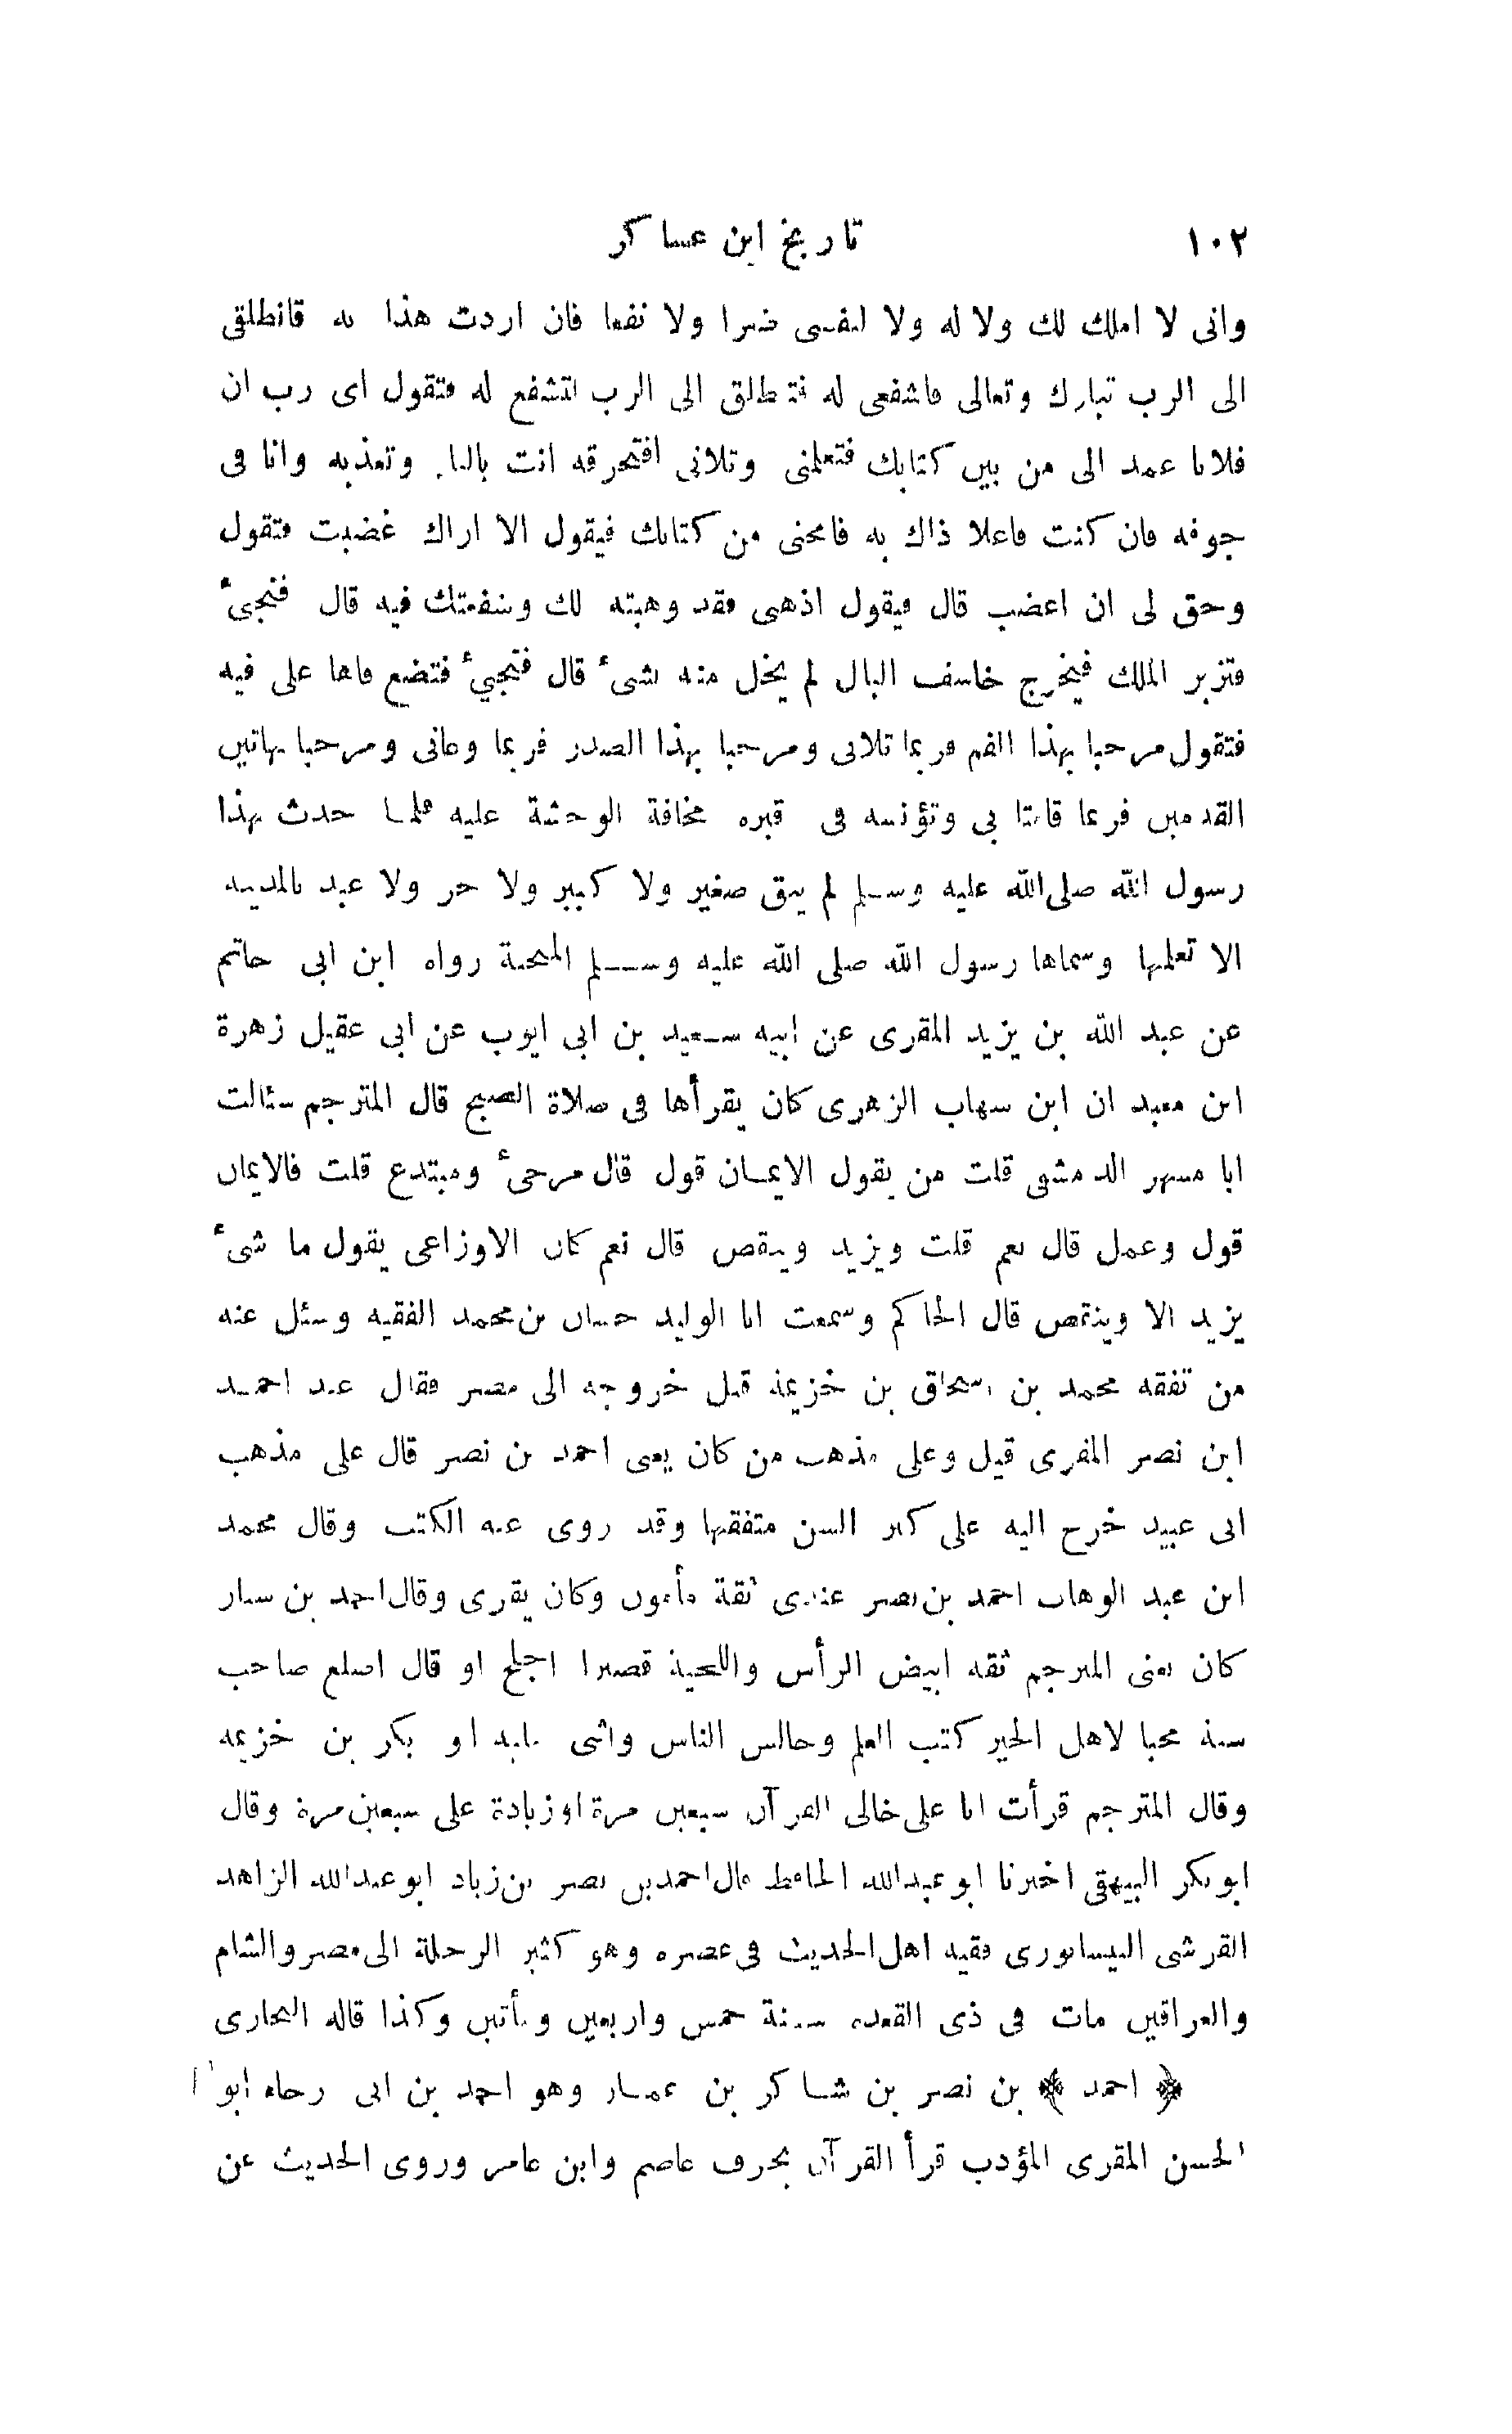 ١٠٢ تاريخ ابن عساكر
وانى لا املك لك ولا له ولا لنفسى ضرا ولا نفعا فان اردت هذا به فانطلقى
الى الرب تبارك وتعالى فاشفعى له فتنطلق الى الرب لتشفع له فتقول اى رب ان
فلانا عمد الى من بين كتابك فتعلمنى وتلانى افتحرقه انت بالنار وتعذبه وانا فى
جوفه فان كنت فاعلا ذاك به فامحنى من كتابك فيقول الا اراك غضبت فتقول
وحق لى ان اغضب قال فيقول اذهبى فقد وهبته لك وشفعتك فيه قال فتجىء
فتزبر الملك فيخرج خاسف البال لم يحل منه بشىء قال فتجيء فتضع فاها على فيه
فتقول مرحبا بهذا الفم فربما تلانى ومرحبا بهذا الصدر فربما وعانى ومرحبا بهاتين
القدمين فربما قامتا بى وتؤنسه فى قبره مخافة الوحشة عليه فلما حدث بهذا
رسول الله صلى الله عليه وسلم لم يبق صغير ولا كبير ولا حر ولا عبد بالمدينه
الا تعلمها وسماها رسول الله صلى الله عليه وسلم المنجية رواه ابن ابى حاتم
عن عبد الله بن يزيد المقرى عن ابيه سعيد بن ابى ايوب عن ابى عقيل زهرة
ابن معبد ان ابن شهاب الزهرى كان يقرأها فى صلاة الصبح قال المترجم سئالت
ابا مسهر الدمشقى قلت من يقول الايمان قول قال مرجىء ومبتدع قلت فالايمان
قول وعمل قال نعم قلت ويزيد وينقص قال نعم كان الاوزاعى يقول ما شىء
يزيد الا وينتقص قال الحاكم وسمعت ابا الوليد حسان بن محمد الفقيه وسئل عنه
من تفقه محمد بن اسحاق بن خزيمة قبل خروجه الى مصر فقال عند احمد
ابن نصر المقرى قيل وعلى مذهب من كان يعنى احمد بن نصر قال على مذهب
ابى عبيد خرج اليه على كبر السن متفقها وقد روى عنه الكتب وقال محمد
ابن عبد الوهاب احمد بن نصر عندى ثقة مأمون وكان يقرى وقال احمد بن سيار
كان يعنى المترجم ثقه ابيض الرأس واللحية قصيرا اجلح او قال اصلع صاحب
سنة محبا لاهل الخير كتب العلم وجالس الناس واثنى عليه ابو بكر بن خزيمه
وقال المترجم قرأت انا على خالى القرآن سبعين مرة او زيادة على سبعين مرة وقال
ابو بكر البيهقى اخبرنا ابو عبدالله الحافظ قال احمد بن نصر بن زياد ابو عبدالله الزاهد
القرشى النيسابورى فقيه اهل الحديث فى عصره وهو كثير الرحلة الى مصر والشام
والعراقين مات فى ذى القعده سنة خمس واربعين ومأتين وكذا قاله البخارى
﴿ احمد ﴾ بن نصر بن شاكر بن عمار وهو احمد بن ابى رجاء ابو
الحسن المقرى المؤدب قرأ القرآن بحرف عاصم وابن عامر وروى الحديث عن